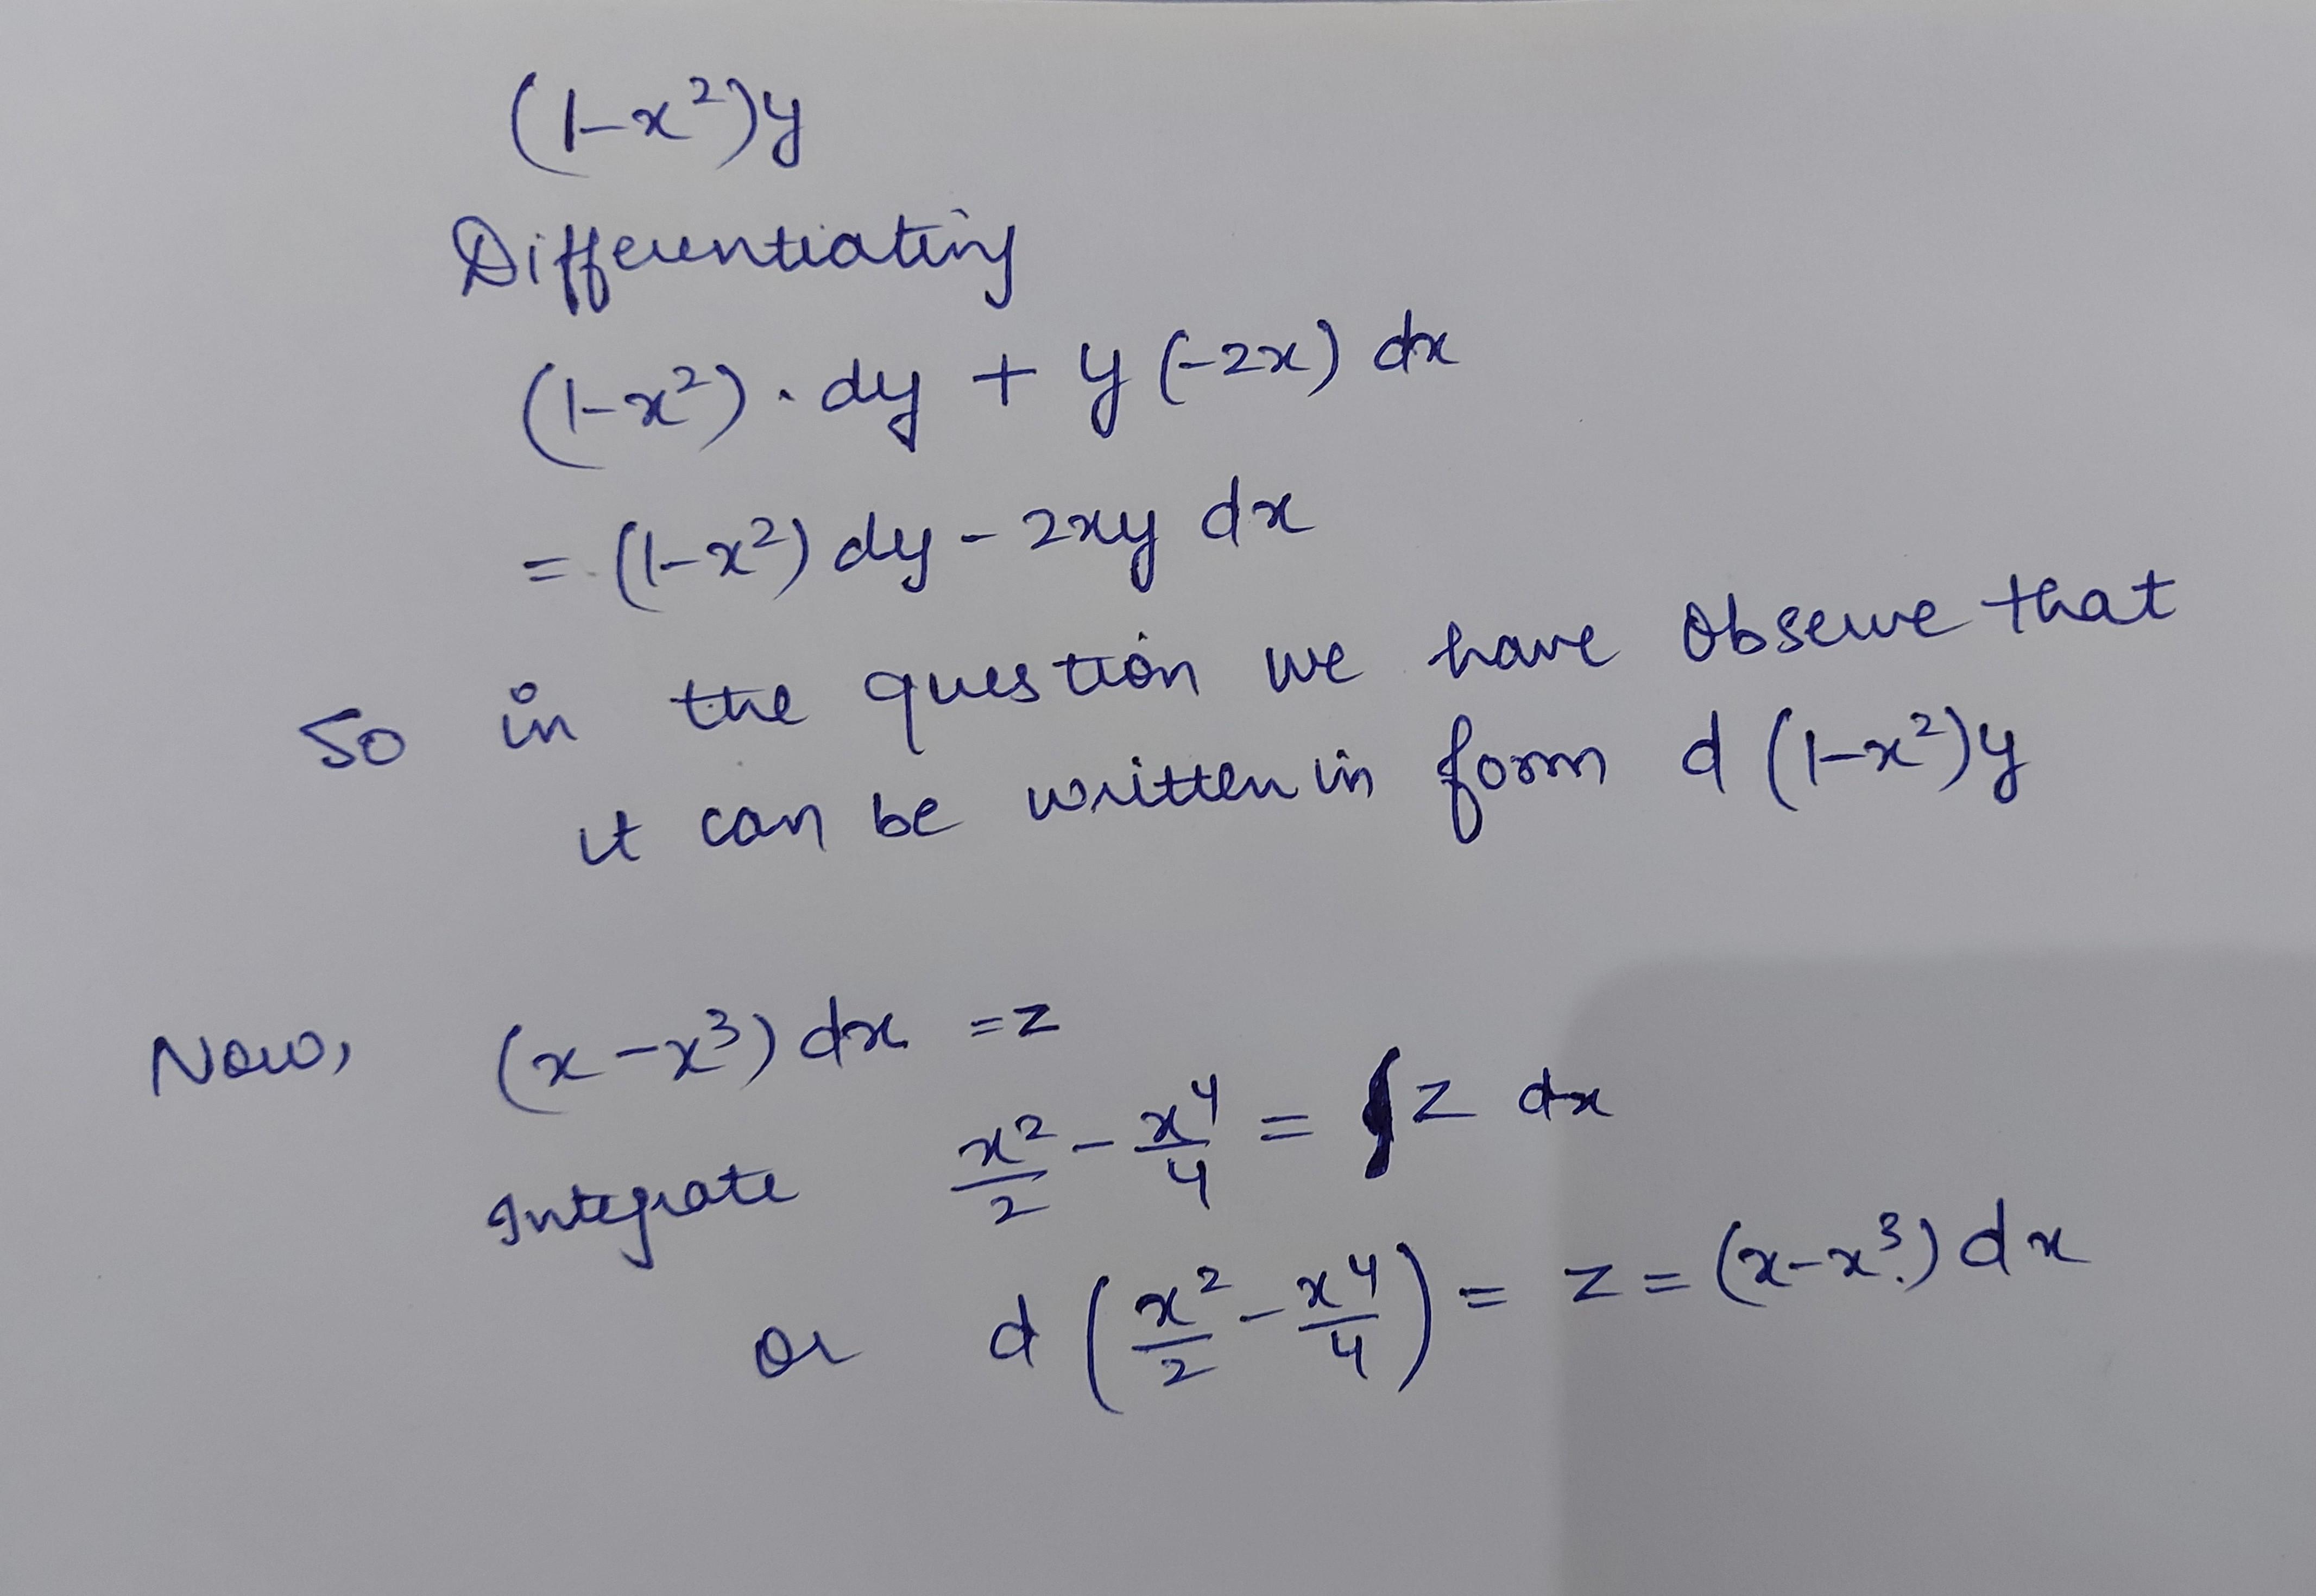 (1-x²)y
Differentiating
(1-x²) . dy + y (-2x) dx
= (1-x²) dy - 2xy dx
So in the question we have observe that
it can be written in form d (1-x²)y
Now, (x - x³) dx = z
Integrate x²/2 - x⁴/4 = ∫ z dx
or d (x²/2 - x⁴/4) = z = (x-x³) dx